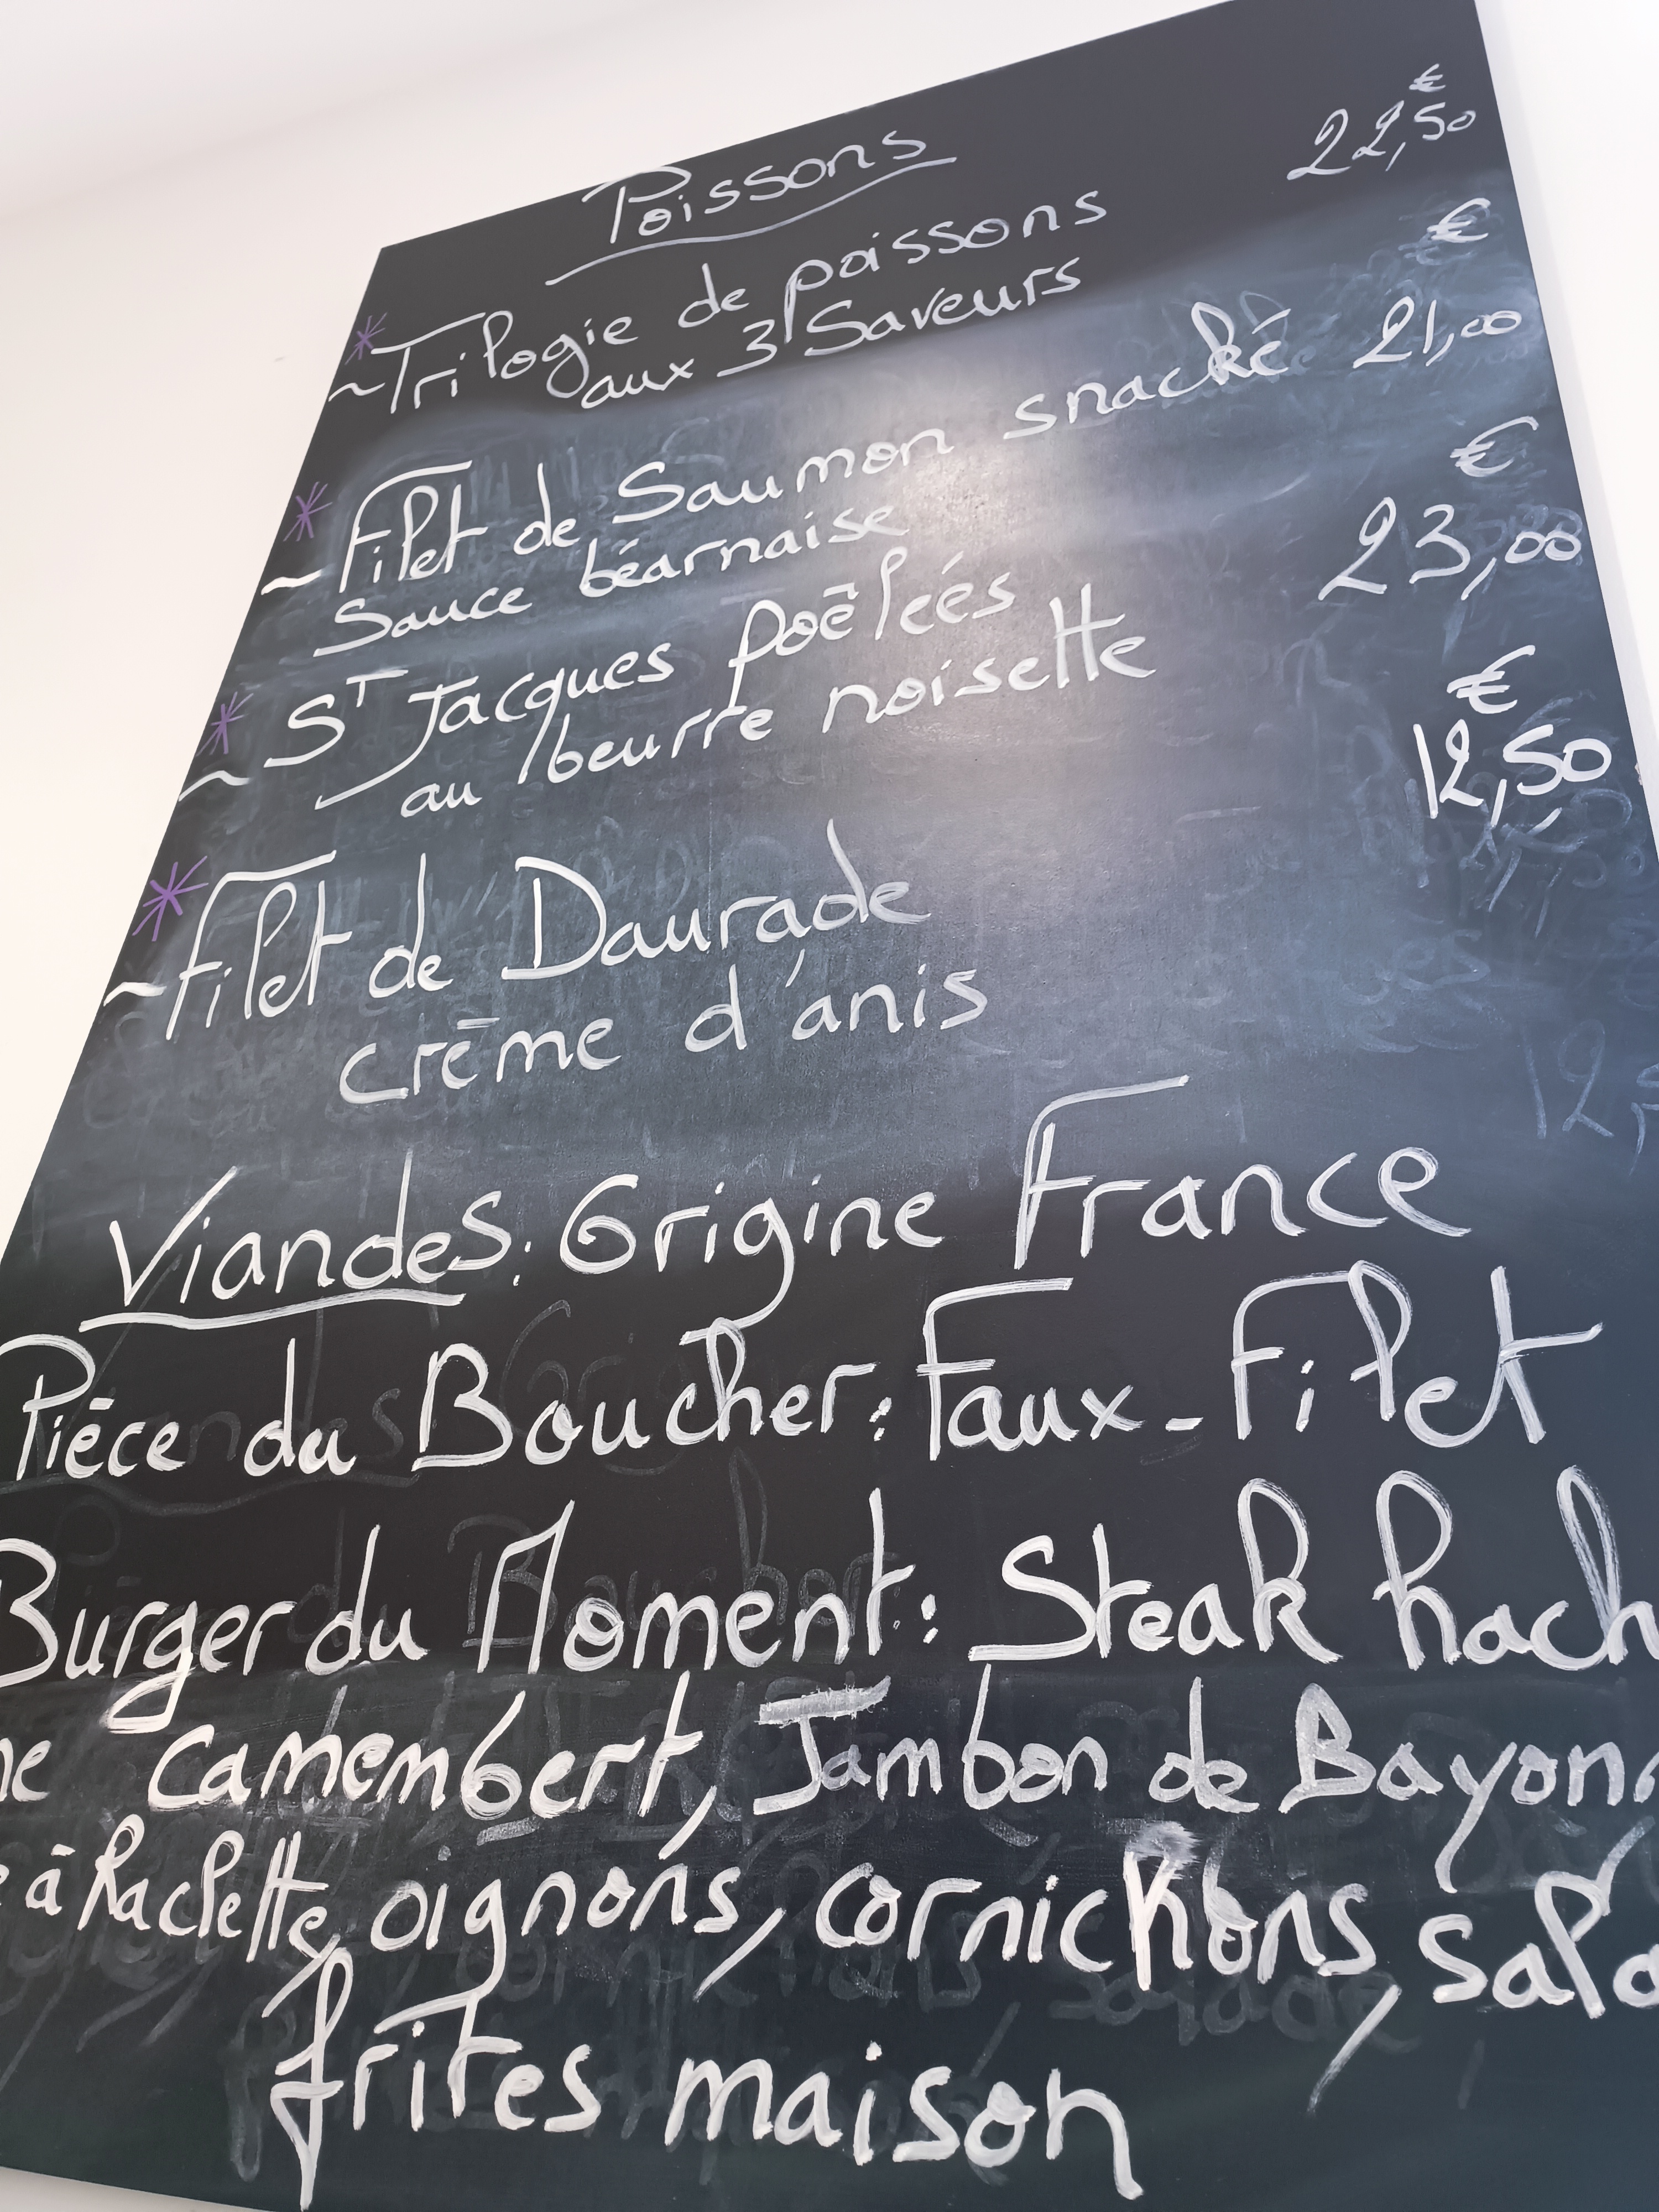 Poissons
22,50 €
* ~Trilogie de poissons
aux 3 Saveurs
* ~Filet de Saumon snacké 21,00 €
Sauce béarnaise
* ~ ST Jacques poêlées 23,00 €
au beurre noisette
* ~Filet de Daurade 12,50 €
crème d'anis
Viandes: Origine France
Pièce du Boucher: Faux-Filet
Burger du Moment: Steak hach
camembert, Jambon de Bayonn
à Raclette, oignons, cornichons, sala
frites maison